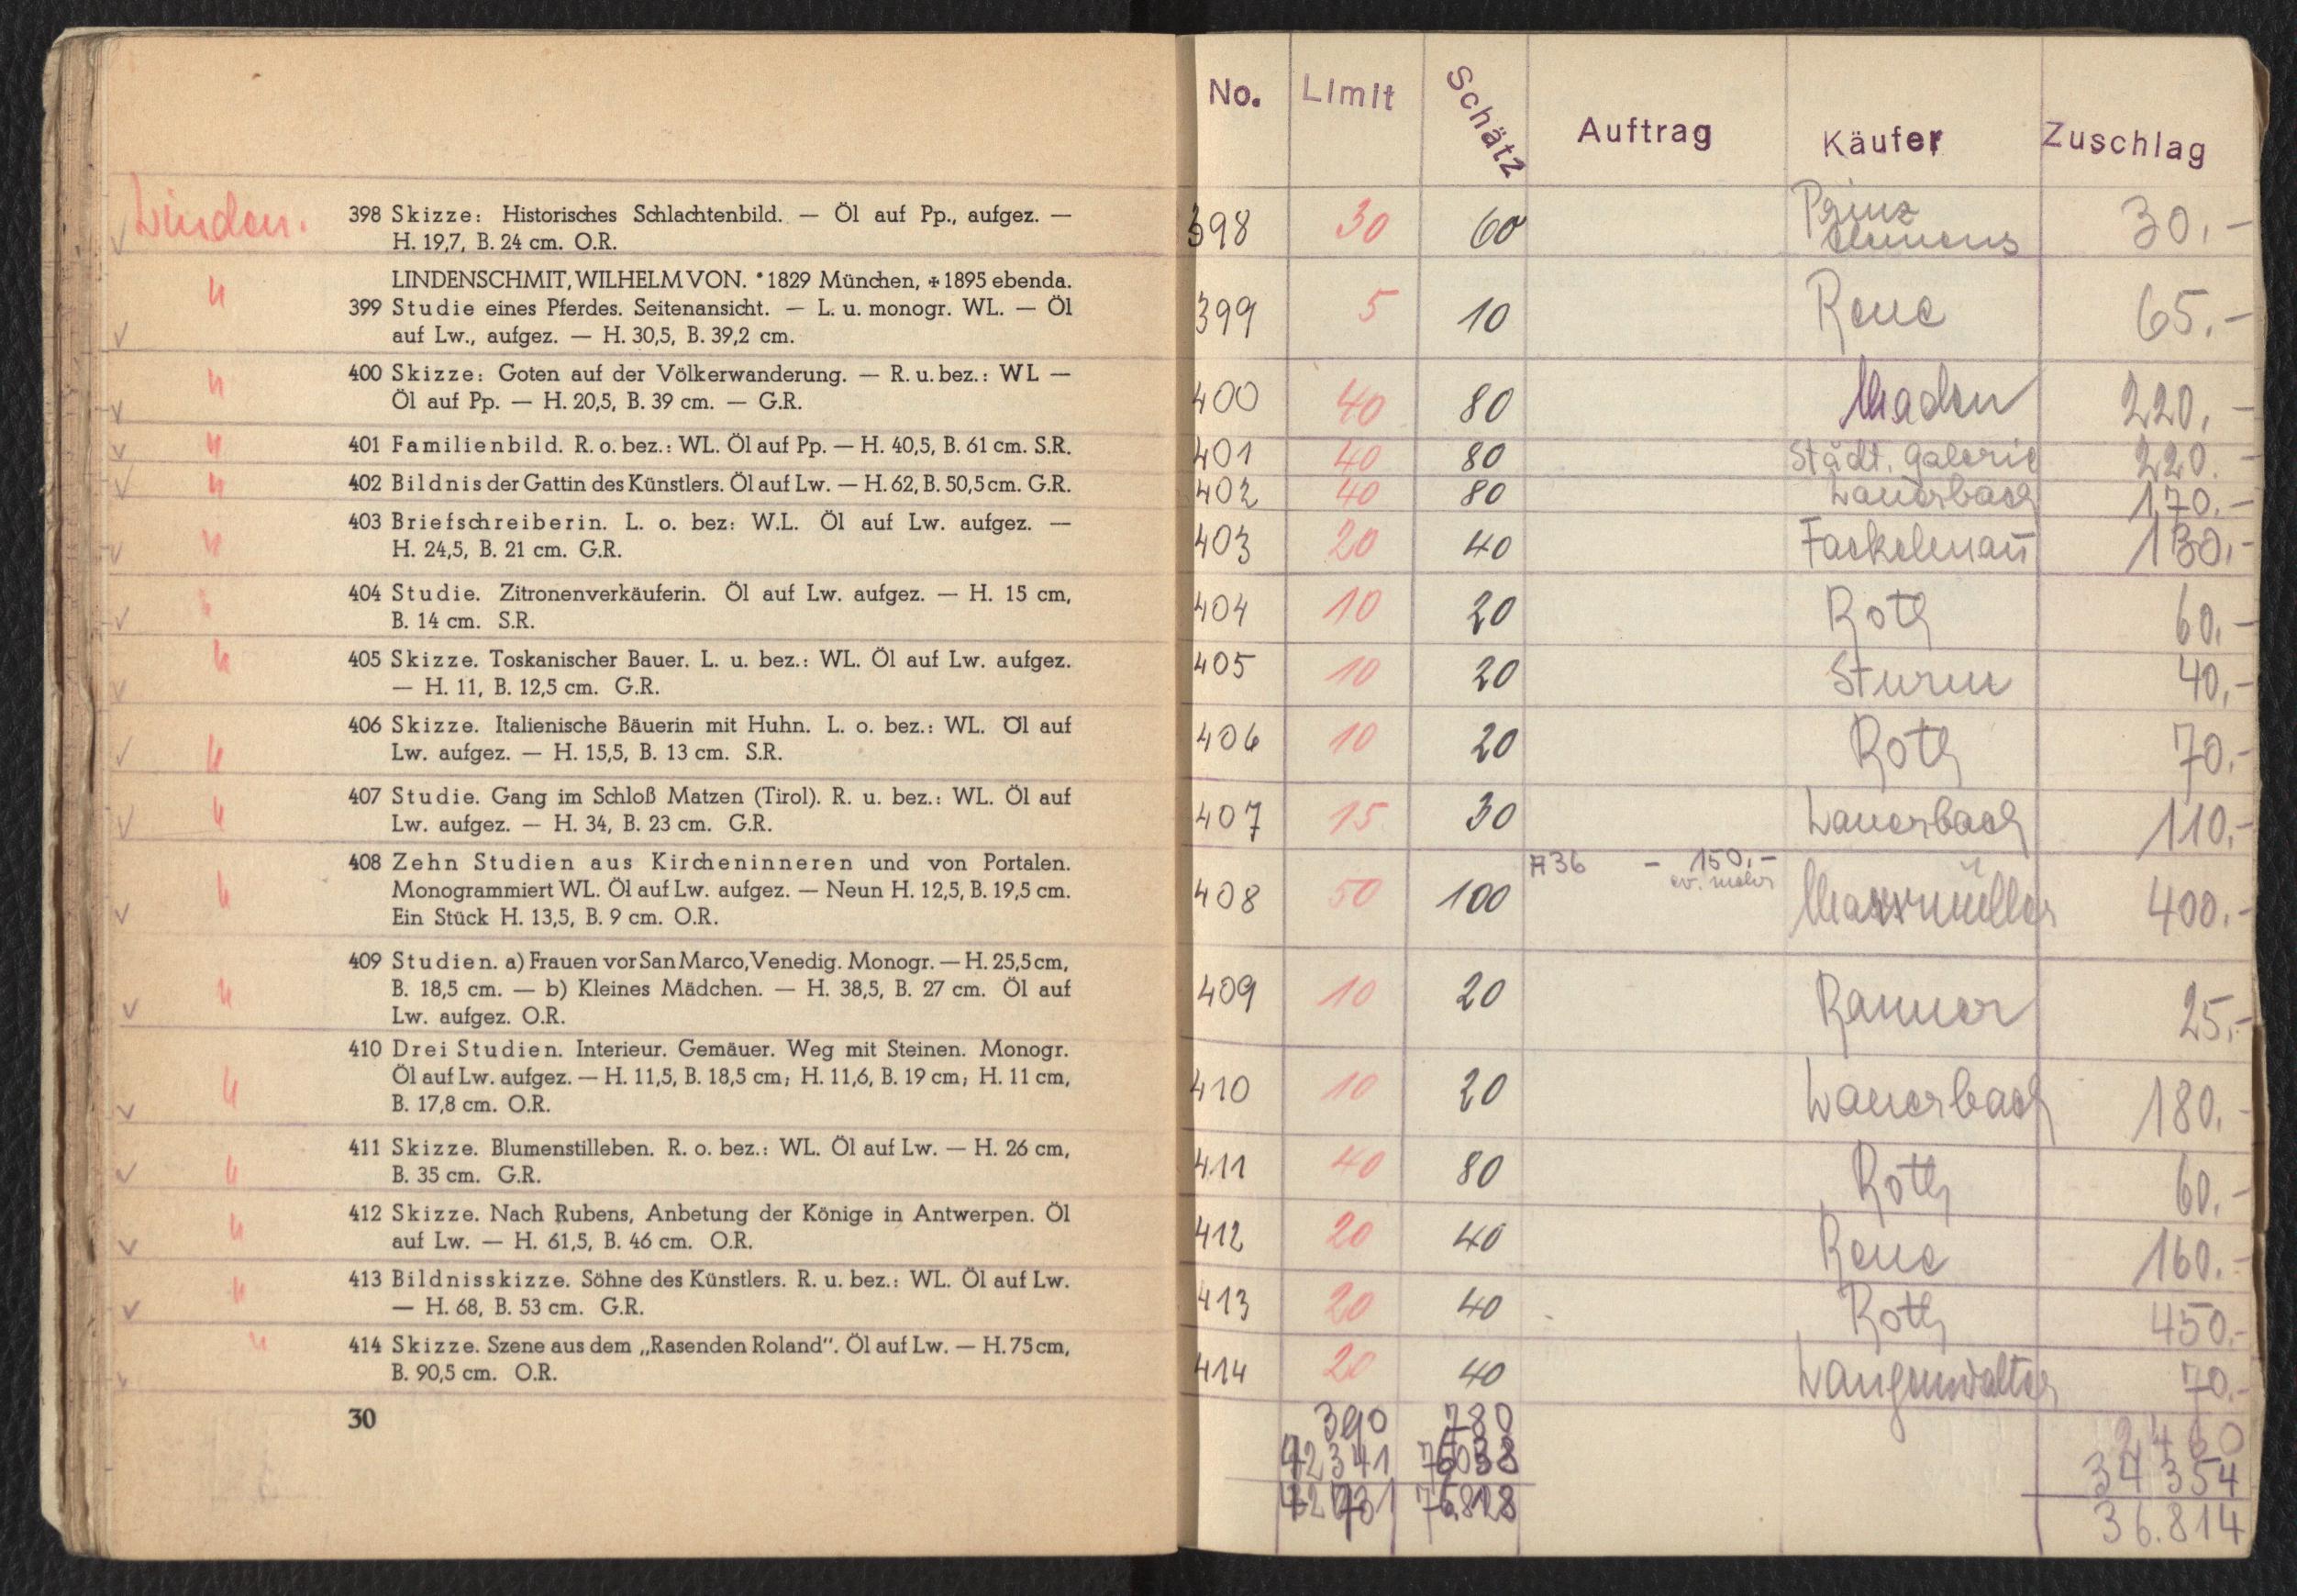 Linden.
398 Skizze: Historisches Schlachtenbild. — Öl auf Pp., aufgez. —
H. 19,7, B. 24 cm. O.R.
LINDENSCHMIT, WILHELM VON. *1829 München, ✠ 1895 ebenda.
399 Studie eines Pferdes. Seitenansicht. — L. u. monogr. WL. — Öl
auf Lw., aufgez. — H. 30,5, B. 39,2 cm.
400 Skizze: Goten auf der Völkerwanderung. — R. u. bez.: WL —
Öl auf Pp. — H. 20,5, B. 39 cm. — G.R.
401 Familienbild. R. o. bez.: WL. Öl auf Pp. — H. 40,5, B. 61 cm. S.R.
402 Bildnis der Gattin des Künstlers. Öl auf Lw. — H. 62, B. 50,5 cm. G.R.
403 Briefschreiberin. L. o. bez: W.L. Öl auf Lw. aufgez. —
H. 24,5, B. 21 cm. G.R.
404 Studie. Zitronenverkäuferin. Öl auf Lw. aufgez. — H. 15 cm,
B. 14 cm. S.R.
405 Skizze. Toskanischer Bauer. L. u. bez.: WL. Öl auf Lw. aufgez.
— H. 11, B. 12,5 cm. G.R.
406 Skizze. Italienische Bäuerin mit Huhn. L. o. bez.: WL. Öl auf
Lw. aufgez. — H. 15,5, B. 13 cm. S.R.
407 Studie. Gang im Schloß Matzen (Tirol). R. u. bez.: WL. Öl auf
Lw. aufgez. — H. 34, B. 23 cm. G.R.
408 Zehn Studien aus Kircheninneren und von Portalen.
Monogrammiert WL. Öl auf Lw. aufgez. — Neun H. 12,5, B. 19,5 cm.
Ein Stück H. 13,5, B. 9 cm. O.R.
409 Studien. a) Frauen vor San Marco, Venedig. Monogr. — H. 25,5 cm,
B. 18,5 cm. — b) Kleines Mädchen. — H. 38,5, B. 27 cm. Öl auf
Lw. aufgez. O.R.
410 Drei Studien. Interieur. Gemäuer. Weg mit Steinen. Monogr.
Öl auf Lw. aufgez. — H. 11,5, B. 18,5 cm; H. 11,6, B. 19 cm; H. 11 cm,
B. 17,8 cm. O.R.
411 Skizze. Blumenstilleben. R. o. bez.: WL. Öl auf Lw. — H. 26 cm,
B. 35 cm. G.R.
412 Skizze. Nach Rubens, Anbetung der Könige in Antwerpen. Öl
auf Lw. — H. 61,5, B. 46 cm. O.R.
413 Bildnisskizze. Söhne des Künstlers. R. u. bez.: WL. Öl auf Lw.
— H. 68, B. 53 cm. G.R.
414 Skizze. Szene aus dem „Rasenden Roland“. Öl auf Lw. — H. 75 cm,
B. 90,5 cm. O.R.
30
No. Limit Schätz Auftrag Käufer Zuschlag
398 30 60 Prinz Clemens 30.-
399 5 10 Rene 65.-
400 40 80 220.-
401 40 80 Städt. Galerie 220.-
402 40 80 Lauerbach 170.-
403 20 40 Fackelmañ 130.-
404 10 20 Roth 60.-
405 10 20 Sturm 40.-
406 10 20 Roth 70.-
407 15 30 Lauerbach 110.-
408 50 100 A36 - 150.- ev. mehr 400.-
409 10 20 25.-
410 10 20 Lauerbach 180.-
411 40 80 Roth 60.-
412 20 40 Rene 160.-
413 20 40 Roth 450.-
414 20 40 Langenwalter 70.-
390 780 2460
34354
36.814